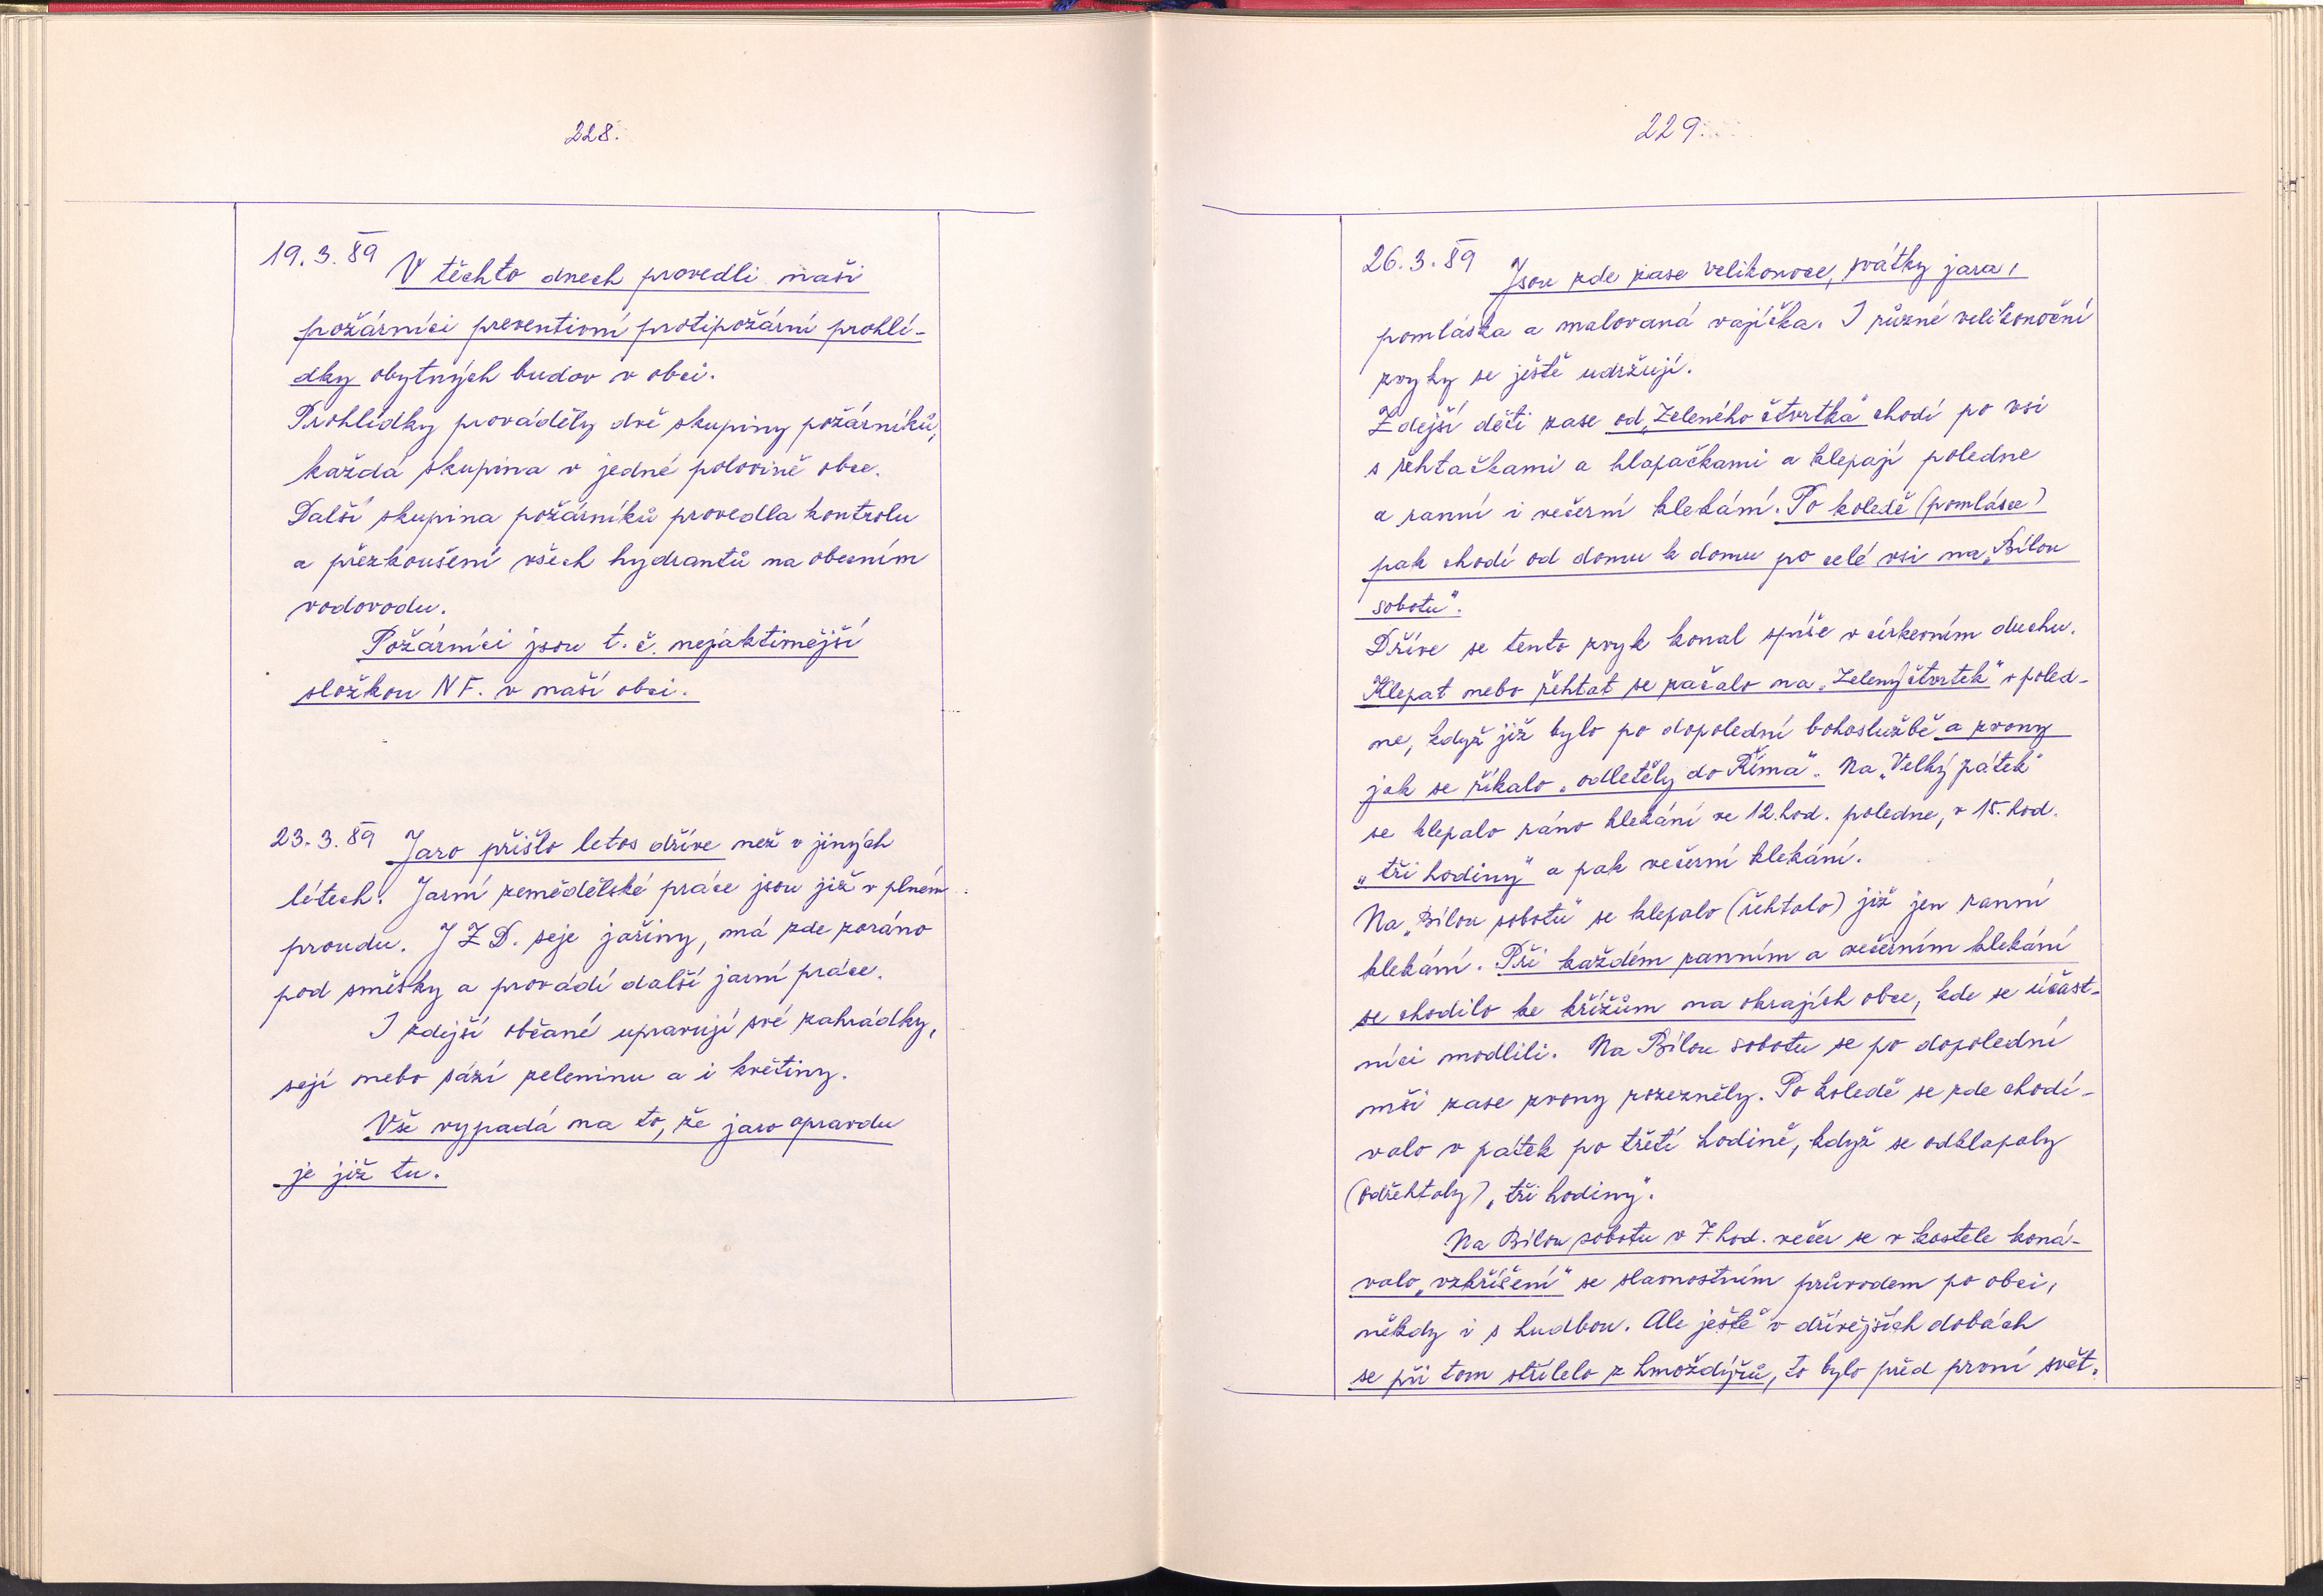 228.
19.3.89 V těchto dnech provedli naši
požárníci preventivní protipožární prohlí-
dky obytných budov v obci.
Prohlídky prováděly dvě skupiny požárníků,
každá skupina v jedné polovině obce.
Další skupina požárníků provedla kontrolu
a přezkoušení všech hydrantů na obecním
vodovodu.
Požárníci jsou t.č. nejaktivnější
složkou NF. v naší obci.
23.3.89 Jaro přišlo letos dříve než v jiných
létech. Jarní zemědělské práce jsou již v plném
proudu. JZD. seje jařiny, má zde zoráno
pod směsky a provádí další jarní práce.
I zdejší občané upravují své zahrádky,
sejí nebo sází zeleninu a i květiny.
Vše vypadá na to, že jaro opravdu
je již tu.
229.
26.3.89 Jsou zde zase velikonoce, svátky jara,
pomlázka a malovaná vajíčka. I různé velikonoční
zvyky se ještě udržují.
Zdejší děti zase od „Zeleného čtvrtka" chodí po vsi
s řehtačkami a klapačkami a klepají poledne
a ranní i večerní klekání. Po koledě (pomlázce)
pak chodí od domu k domu po celé vsi na „Bílou
sobotu".
Dříve se tento zvyk konal spíše v církevním duchu.
Klepat nebo řehtat se začalo na „Zelený čtvrtek" v poled-
ne, když již bylo po dopolední bohoslužbě a zvony
jak se říkalo „odletěly do Říma". Na „Velký pátek"
se klepalo ráno klekání ve 12.hod. poledne, v 15.hod.
„tři hodiny" a pak večerní klekání.
Na „Bílou sobotu" se klepalo (řehtalo) již jen ranní
klekání. Při každém ranním a večerním klekání
se chodilo ke křížům na okrajích obce, kde se účast-
níci modlili. Na Bílou sobotu se po dopolední
mši zase zvony rozezněly. Po koledě se zde chodí-
valo v pátek po třetí hodině, když se odklapaly
(odřehtaly) „tři hodiny".
Na Bílou sobotu v 7.hod. večer se v kostele koná-
valo „vzkříšení" se slavnostním průvodem po obci,
někdy i s hudbou. Ale ještě v dřívějších dobách
se při tom střílelo z hmoždýřů, to bylo před první svět.